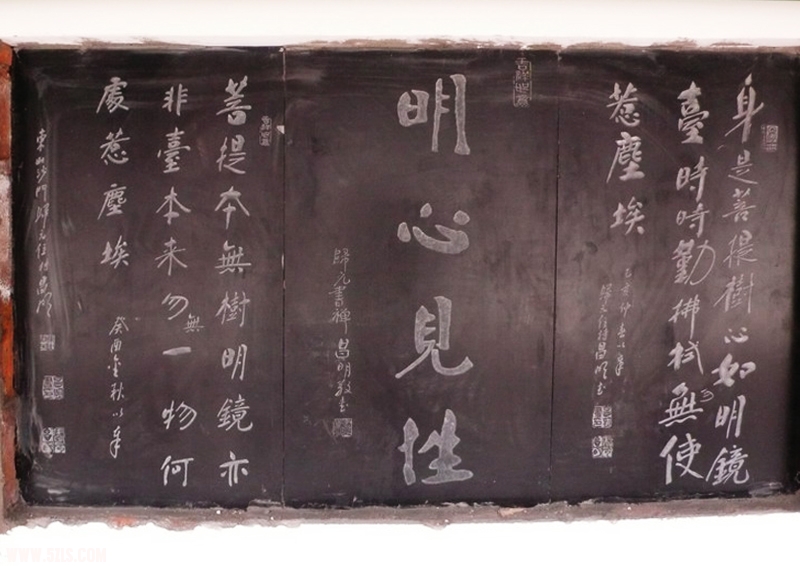 身是菩提樹心如明鏡
臺時時勤拂拭無使
惹塵埃
歸元住持昌明書
明心見性
歸元書禪昌明敬書
菩提本無樹明鏡亦
非臺本来勿一物何
無
處惹塵埃
癸酉金秋
東山沙門歸元住持昌明